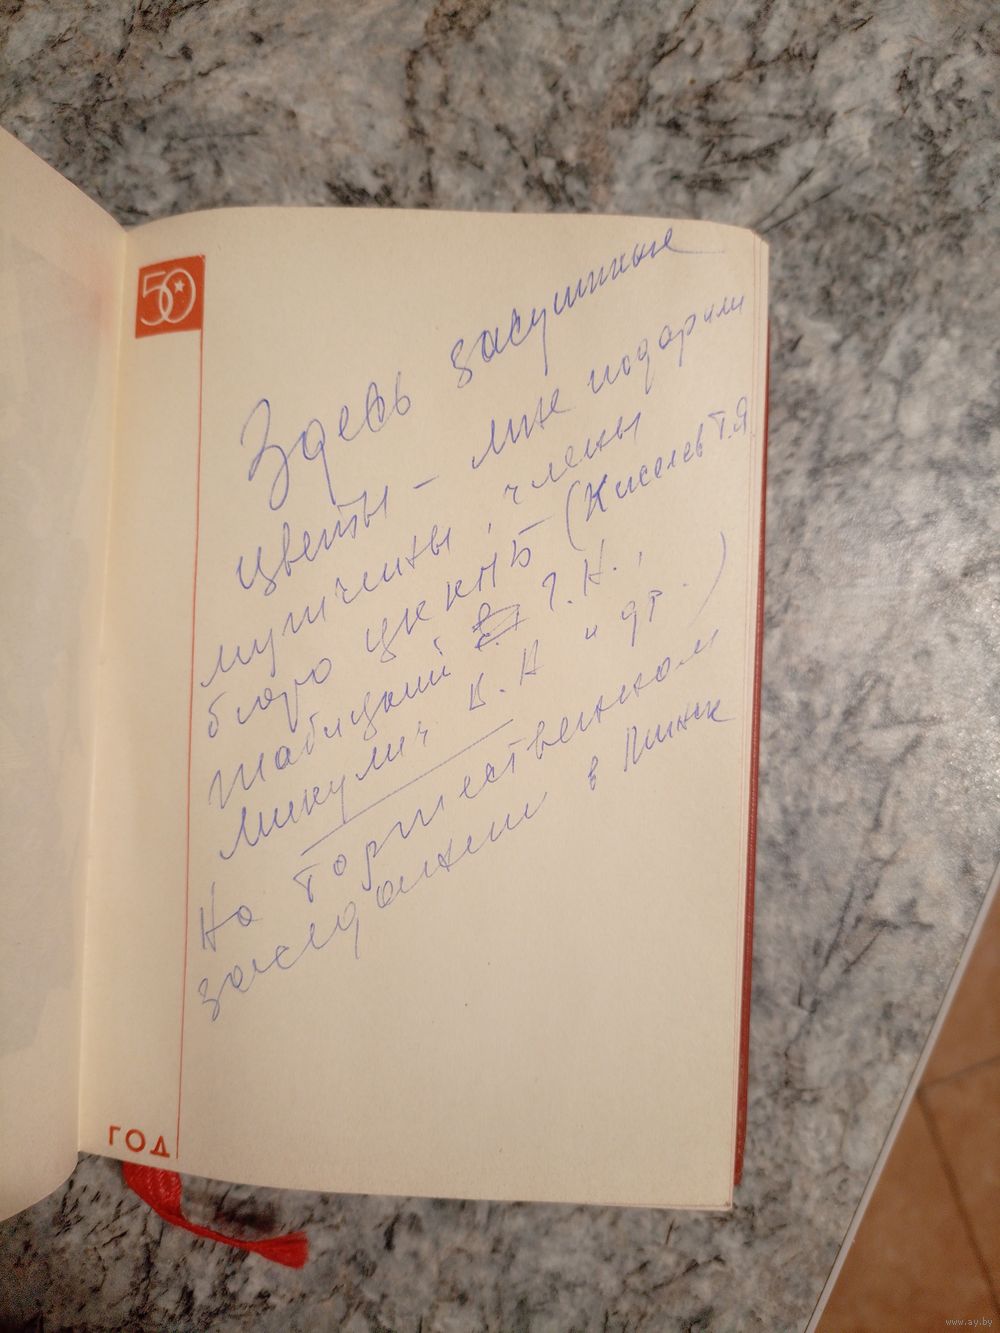 50
Здесь засушиные
цветы – мне подарили
мужчины, члены
бюро ЦК КПБ (Киселев Т.Я
Жабицкий Г.Н.,
Микулич В.А и др.)
На торжественном
заседании в Минск
ГОД
www.ay.by